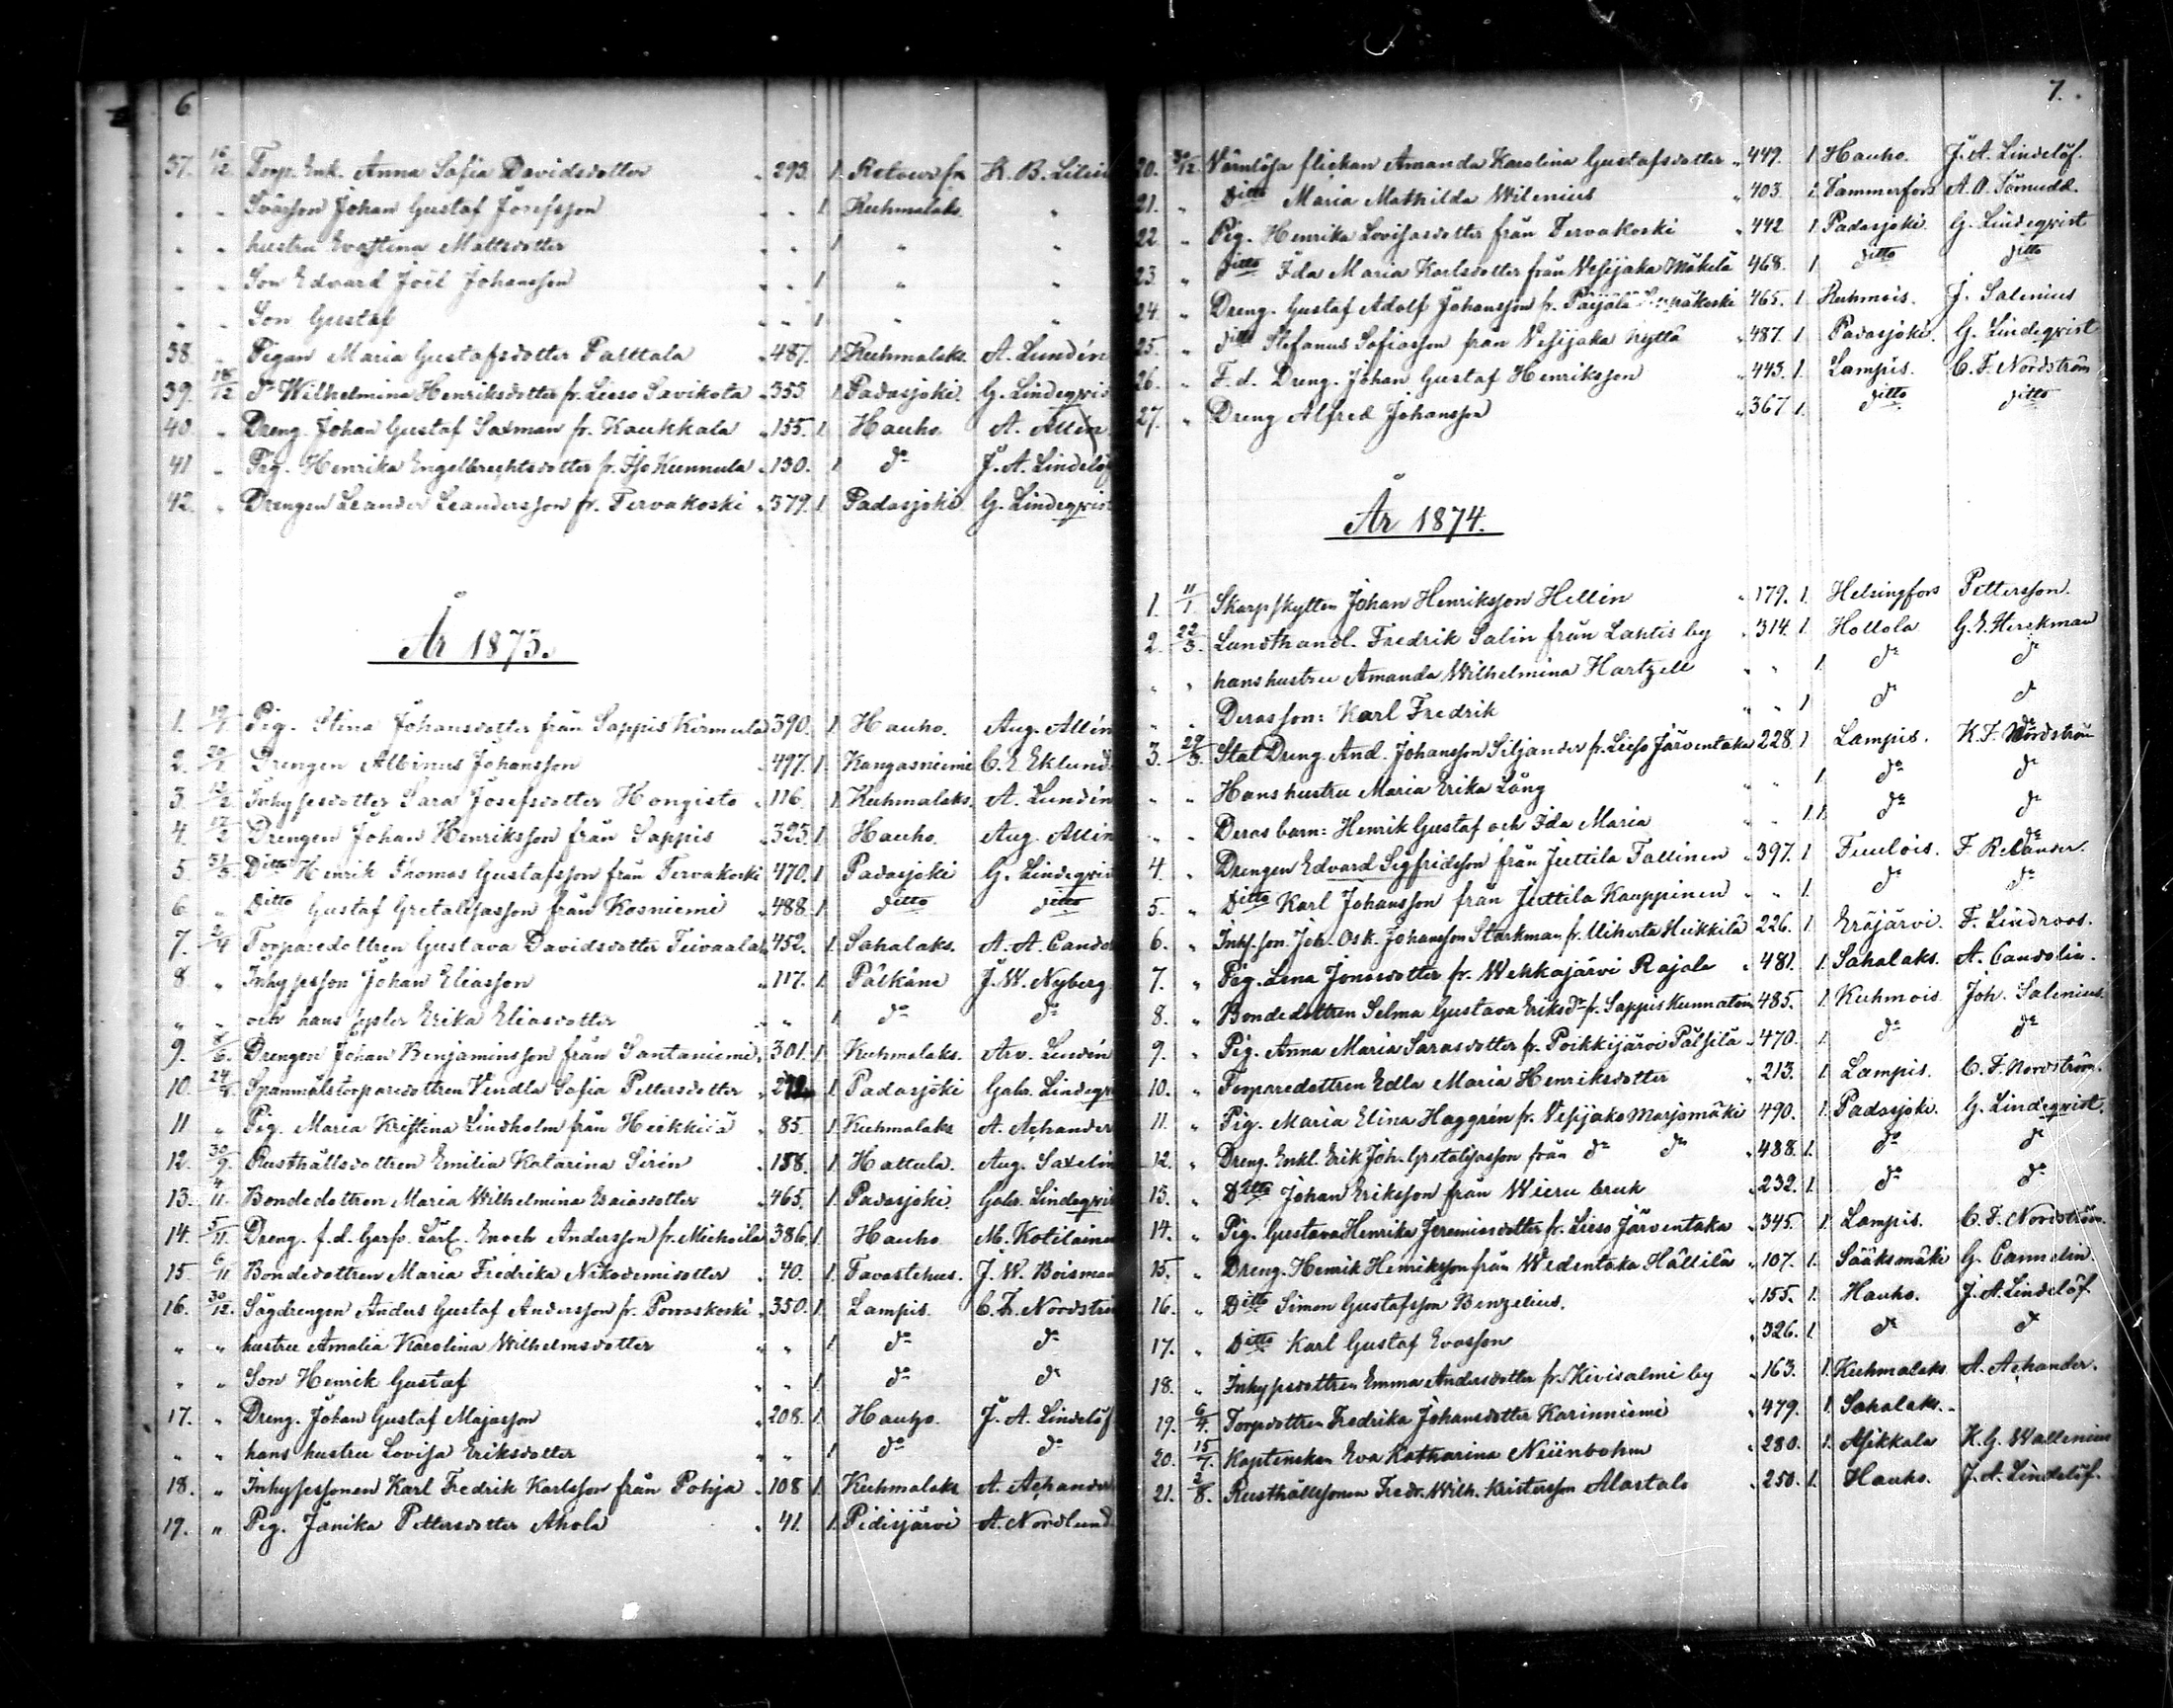 6
37. 16/12 Torp. Enk. Anna Sofia Davidsdotter „ 293. 1. Retour fr. K. B. Lilius
„ „ Svärson Johan Gustaf Josefsson „ „ 1. Kuhmalaks „
„ „ hustru Evastina Mattsdotter „ „ 1 „ „
„ „ Son Edvard Joël Johansson „ „ 1 „ „
„ „ Son Gustaf „ „ 1 „ „
38. „ Pigan Maria Gustafsdotter Palttala „ 487. 1 Kuhmalaks. A. Lundén
39. 18/12 do Wilhelmina Henriksdotter fr. Lieso Savikota „ 353. 1 Padasjoki. G. Lindeqvis
40. „ Dreng. Johan Gustaf Saxman fr. Kaukkala „ 155. 1. Hauho. A. Allén
41 „ Pig. Henrika Engelbrechtsdotter fr. Iso Kunnula „ 130. 1 do J. A. Lindelöf
42. „ Drengen Leander Leandersson fr. Tervakoski „ 379. 1. Padasjoki. G. Lindeqvist
År 1873.
1. 19/1 Pig. Stina Johansdotter från Sappis Kirmula 390. 1 Hauho. Aug. Allén
2. Drengen Albinus Johansson „ 497. 1. Kangasniemi C. E. Eklund.
3. Inhysesdotter Sara Josefsdotter Hongisto „ 116. 1 Kuhmalaks. A. Lundén
4. 17/2 Drengen Johan Henriksson från Sappis „ 323. 1 Hauho. Aug. Allén
5. 31/3 Ditto Henrik Thomas Gustafsson från Tervakoski 470. 1 Padasjoki G. Lindeqvis
6 „ Ditto Gustaf Gretalisasson från Kosniemi „ 488. 1 ditto ditto
7. 2/4 Torparedottren Gustava Davidsdotter Teivaala „ 452. 1. Sahalaks. A. A. Cando
8 „ Inhysesson Johan Eliasson „ 117. 1. Pälkäne J. W. Nyberg
„ „ och hans syster Erika Eliasdotter „ „ 1 do do
9. 8/6. Drengen Johan Benjaminsson från Santaniemi „ 301. 1. Kuhmalaks. Arv. Lundén
10. Spanmålstorparedottren Vendla Sofia Pettersdotter 1. Padasjoki Gabr. Lindeqv
11 „ Pig. Maria Kristina Lindholm från Heikkilä „ 85. 1. Kuhmalaks A. Achander
12. 30/9. Rusthållsdottren Emilia Katarina Sirén „ 138. 1. Hattula. Aug. Saxelin
13. 4/11. Bondedottren Maria Wilhelmina Esaiasdotter „ 465. 1. Padasjoki. Gabr. Lindeqvis
14. 5/11. Dreng. f.d. Garfv. Lärl. Enoch Andersson fr. Michoila 386. 1 Hauho M. Kotilaine
15 6/11 Bondedottren Maria Fredrika Nikodemisdotter „ 40. 1. Tavastehus. J. W. Boisman
16. 30/12. Sågdrengen Anders Gustaf Andersson fr. Porraskoski „ 350. 1. Lampis. C. F. Nordströ
„ „ hustru Amalia Karolina Wilhelmsdotter „ „ 1 do do
„ „ Son Henrik Gustaf „ „ 1 do do
17. „ Dreng. Johan Gustaf Majasson „ 208. 1. Hauho. J. A. Lindelöf
„ „ hans hustru Lovisa Eriksdotter „ „ 1 do do
18. „ Inhysessonen Karl Fredrik Karlsson från Pohja „ 108 1. Kuhmalaks A. Achander
19. „ Pig. Janika Pettersdotter Ahola „ 41. 1. Pidisjärvi A. Nordlund.
7.
20. 30/12. Värnlösa flickan Amanda Karolina Gustafsdotter „ 449. 1. Hauho. J. A. Lindelöf.
21. „ Ditto Maria Mathilda Wilenius „ 403. 1. Tammerfors A. O. Törnudd.
22 „ Pig. Henrika Lovisasdotter från Tervakoski „ 442 1. Padasjoki. G. Lindeqvist
23. „ Ditto Ida Maria Karlsdotter från Vesijaka Mäkelä 468. 1. ditto ditto
24. „ Dreng. Gustaf Adolf Johansson fr. Päijälä 465. 1. Kuhmois. J. Salenius
25. „ ditto Stefanus Sofiasson från Vesijaka Nyttä „ 487. 1. Padasjoki. G. Lindeqvist
26. „ F. d. Dreng. Johan Gustaf Henriksson „ 443. 1. Lampis. C. F. Nordström
27. „ Dreng Alfred Johansson „ 367 1. ditto ditto
År 1874.
1. 11/1. Skarpskytten Johan Henriksson Hellén „ 179. 1. Helsingfors Pettersson.
2. 22/3. Landthandl. Fredrik Salin från Lahtis by „ 314. 1. Hollola G. I. Herckman
„ „ hans hustru Amanda Wilhelmina Hartzell „ „ 1. do do
„ „ Deras son: Karl Fredrik „ „ 1 do do
3. 29/3. Stat Dreng. And. Johansson Siljander fr. Lieso Järventaka 228. 1 Lampis. K. F. Nordström
„ „ Hans hustru Maria Erika Lång „ „ 1. do do
„ „ Deras barn: Henrik Gustaf och Ida Maria „ „ 1.1. do do
4. „ Drengen Edvard Sigfridsson från Juttila Tallinen „ 397. 1 Tuulois. F. Relander.
5. „ Ditto Karl Johansson från Juttila Kauppinen „ „ 1. do do
6. „ Inh. son. Joh. Osk. Johansson Starkman fr. Uiherla Heikkilä 226. 1 Eräjärvi. F. Lindroos.
7. „ Pig. Lena Jonasdotter fr. Wehkajärvi Rajala „ 481. 1. Sahalaks. A. Candolin.
8. „ Bondedottren Selma Gustava Eriksdr fr. Sappis 485. 1. Kuhmois. Joh. Salenius.
9. „ Pig. Anna Maria Sarasdotter fr. Poikkijärvi Pätsilä „ 470. 1. do do
10. „ Torparedottren Edla Maria Henriksdotter „ 213. 1. Lampis. C. F. Nordström.
11. „ Pig. Maria Elina Haggrén fr. Vesijako Marjomäki 490. 1. Padasjoki. G. Lindeqvist.
12. „ Dreng. Enkl. Erik Joh. Gretalisasson från do do „ 488. 1. do do
13. „ Ditto Johan Eriksson från Wieru bruk „ 232. 1. do do
14. „ Pig. Gustava Henrika Jeremiasdotter fr. Lieso Järventaka „ 345. 1. Lampis. C. F. Nordström.
15. „ Dreng. Henrik Henriksson från Wedentaka Hällilä „ 107. 1. Sääksmäki G. Cannelin.
16. „ Ditto Simon Gustafsson Benzelius. „ 155. 1. Hauho. J. A. Lindelöf
17. „ Ditto Karl Gustaf Evasson „ 326. 1. do do
18. „ Inhysesdottren Emma Andersdotter fr. Kivisalmi by „ 163. 1. Kuhmalaks A. Achander.
19. 6/4. Torpdottren Fredrika Johansdotter Karinniemi „ 479. 1. Sahalaks.
20. 15/7. Kaptenskan Eva Katharina Neiinbohm „ 280. 1. Asikkala K. G. Wallenius
21. 2/8. Rusthållssonen Fredr. Wilh. Kristersson Alastalo „ 250. 1. Hauho. J. A. Lindelöf.